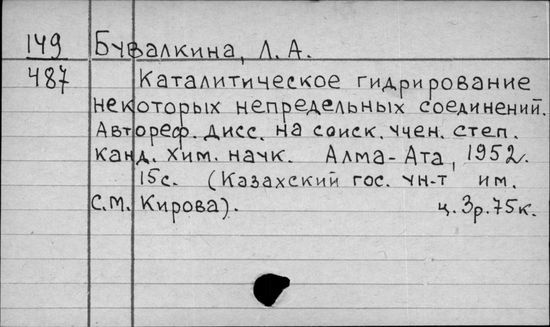 149 Бувалкина, Л. А.
487 Каталитическое гидрирование
некоторых непредельных соединений.
Автореф. дисс. на соиск. учен. степ.
канд. хим. наук. Алма-Ата, 1952.
15с. (Казахский гос. ун-т им.
С.М. Кирова). ц. 3р.75к.